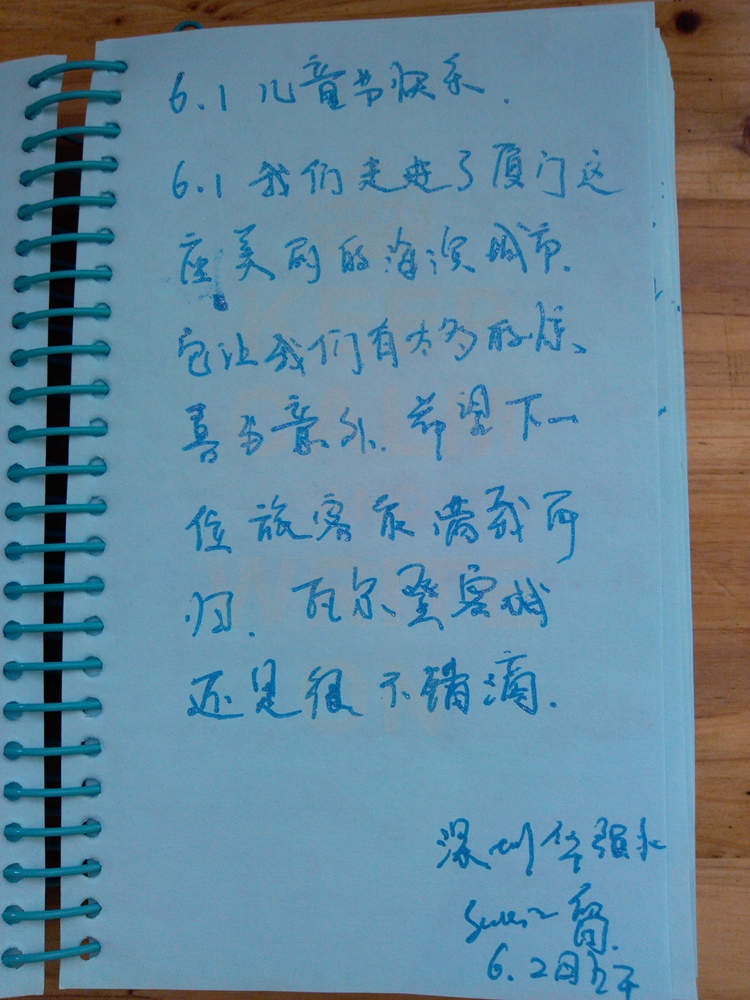 6.1 儿童节快乐.
6.1 我们走进了厦门这
座美丽的海滨城市.
它让我们有太多的惊、
喜与意外. 希望下一
位旅客能满载而
归. 瓦尔登客栈
还是很不错滴.
深圳华强北
留.
6.2日